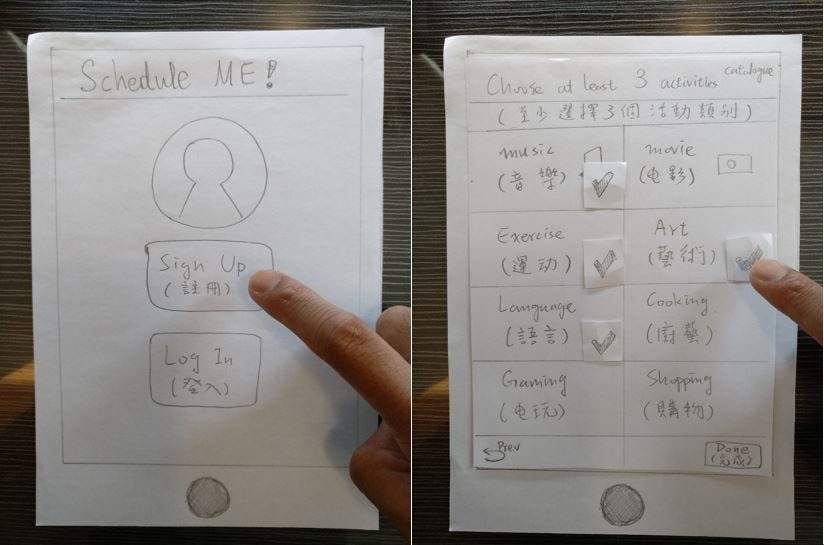 Schedule ME!
Sign Up
(註冊)
Log In
(登入)
Choose at least 3 activities catalogue
(至少選擇3個活動類別)
music
(音樂)
movie
(电影)
Exercise
(運动)
Art
(藝術)
Language
(語言)
Cooking
(廚藝)
Gaming
(电玩)
Shopping
(購物)
Prev
Done
(完成)